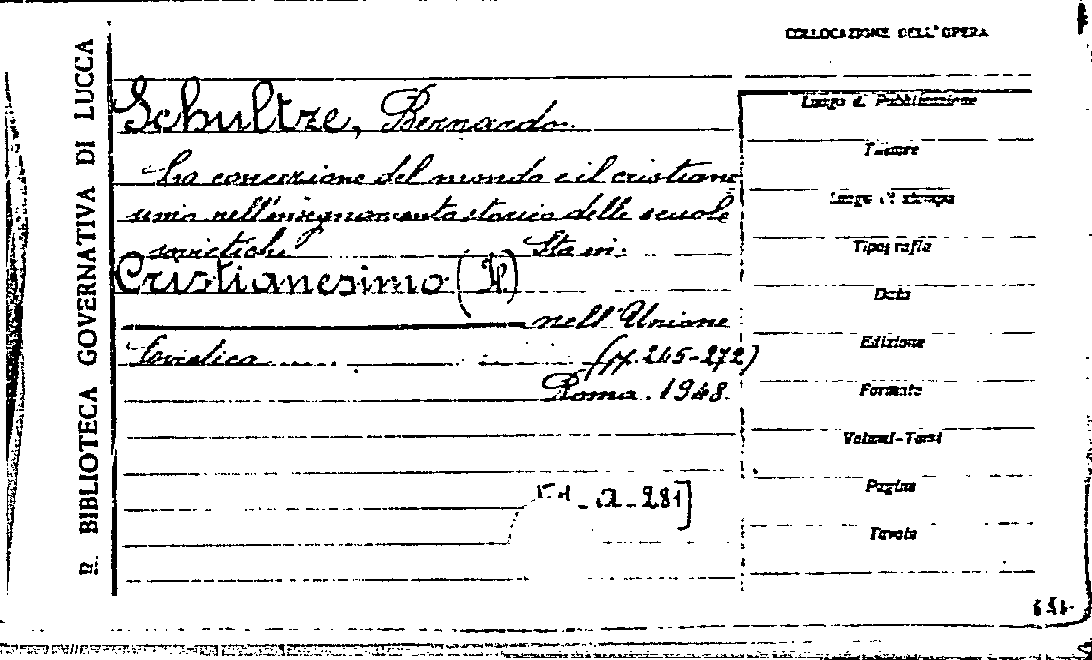 COLLOCAZIONE DELL'OPERA
R. BIBLIOTECA GOVERNATIVA DI LUCCA
Schultze, Bernardo
La concezione del mondo e il cristiane
simo nell'insegnamento storico delle scuole
sovietiche Sta in:
Cristianesimo (Il)
nell'Unione
Sovietica (pp. 245-272)
Roma. 1948.
a-281]
Luogo di Pubblicazione
Editore
Luogo di stampa
Tipografia
Data
Edizione
Formato
Volumi-Tomi
Pagine
Tavole